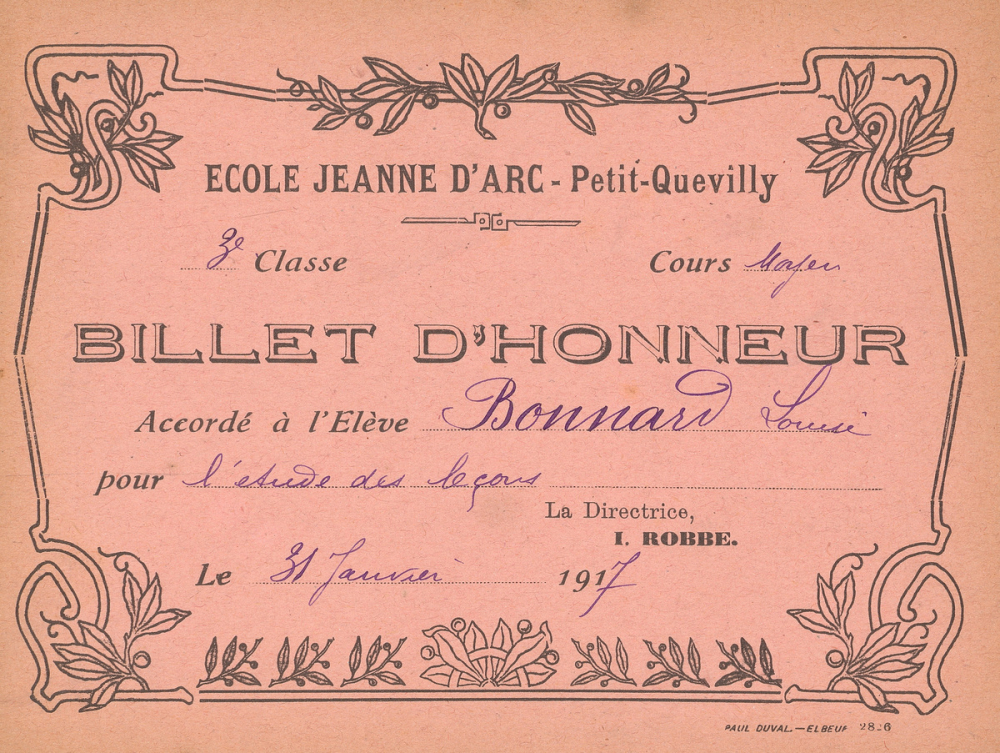 ECOLE JEANNE D'ARC - Petit-Quevilly
3e Classe Cours Moyen
BILLET D'HONNEUR
Accordé à l'Elève Bonnard Louise
pour l'étude des leçons
La Directrice,
I. ROBBE.
Le 31 Janvier 1917
PAUL DUVAL.—ELBEUF